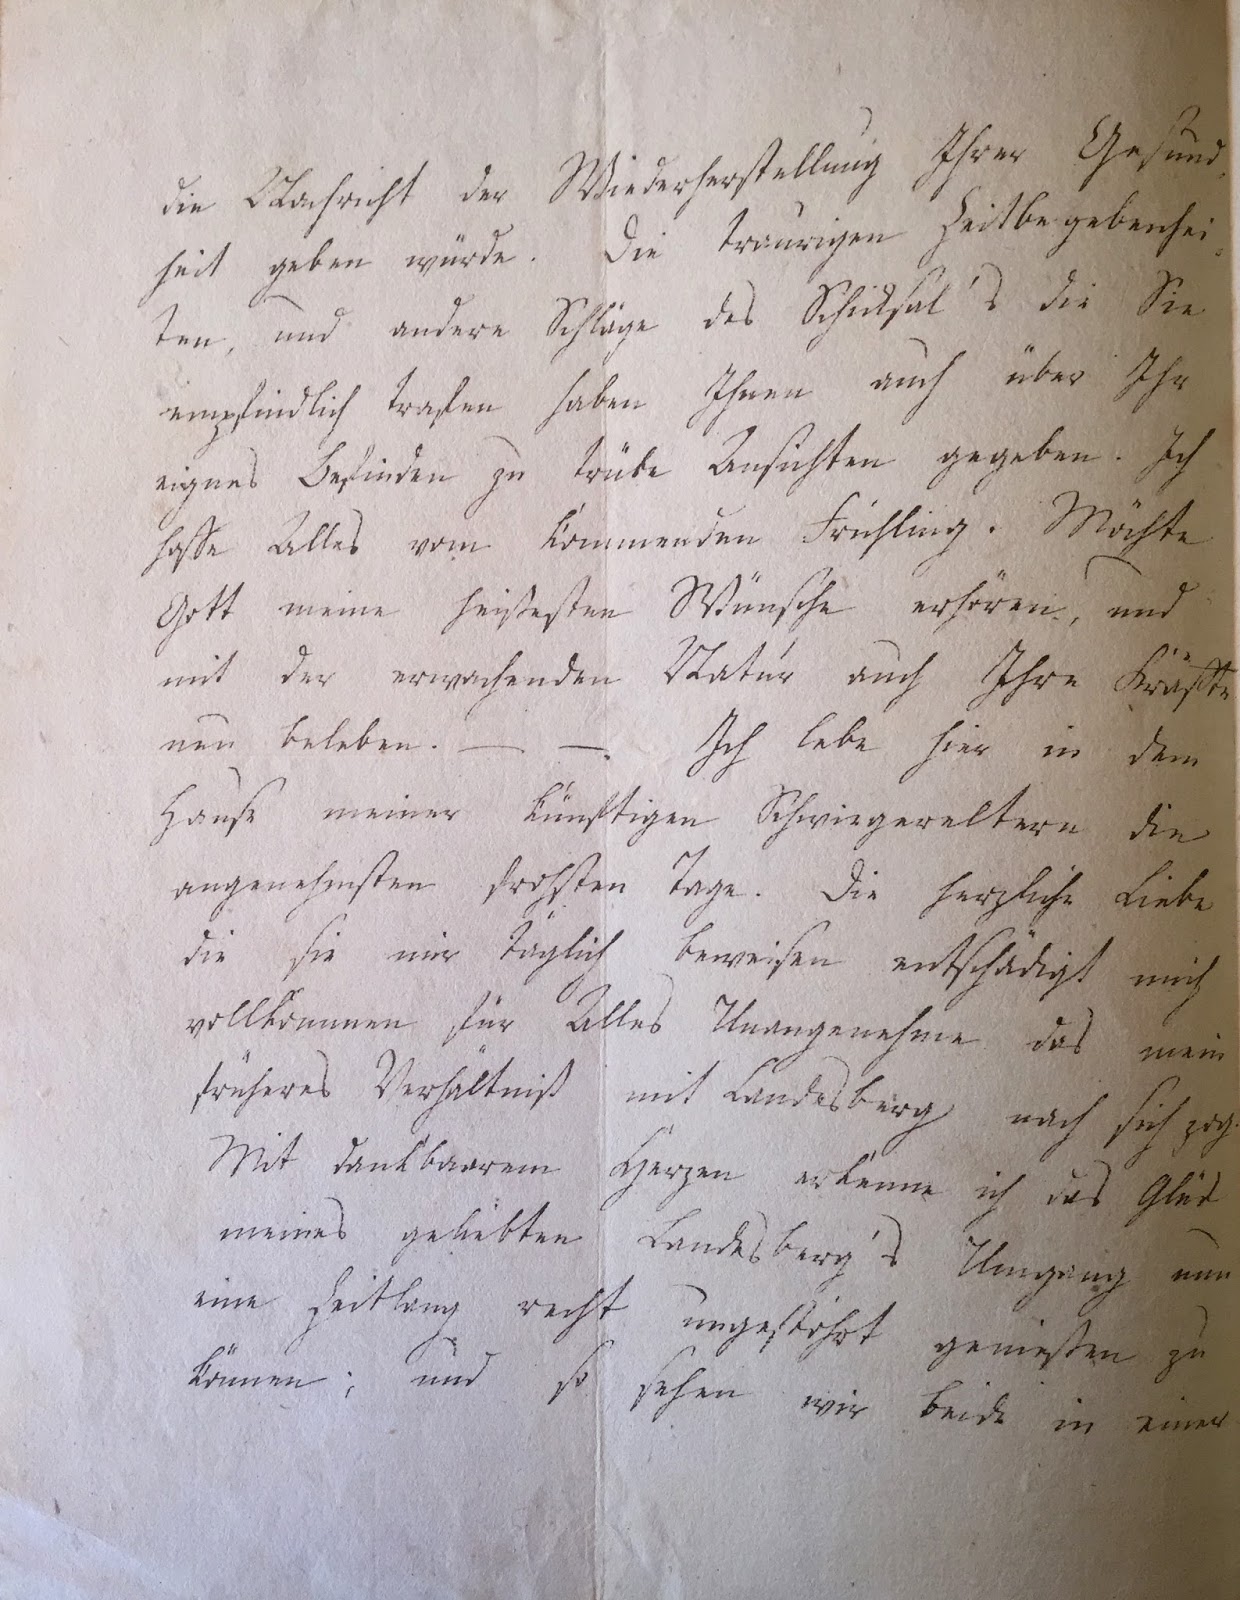 die Nachricht der Wiederherstellung Ihrer Gesund¬
heit geben würde. Die traurigen Zeitbegebenhei¬
ten, und andere Schläge des Schicksal's die Sie
empfindlich trafen haben Ihnen auch über Ihr
eignes Befinden zu trübe Ansichten gegeben. Ich
hoffe Alles vom kommenden Frühling. Möchte
Gott meine heißesten Wünsche erhören, und
mit der erwachenden Natur auch Ihre Kräfte
neu beleben. — —. Ich lebe hier in dem
Hause meiner künftigen Schwiegereltern die
angenehmsten frohsten Tage. Die herzliche Liebe
die sie mir täglich beweisen entschädigt mich
vollkommen für Alles Unangenehme das mein
früheres Verhältniß mit Landesberg nach sich zog.
Mit dankbaarem Herzen erkenne ich das Glück
meines geliebten Landesberg's Umgang nun
eine Zeitlang recht ungestöhrt genießen zu
können; und so sehen wir beide in einer